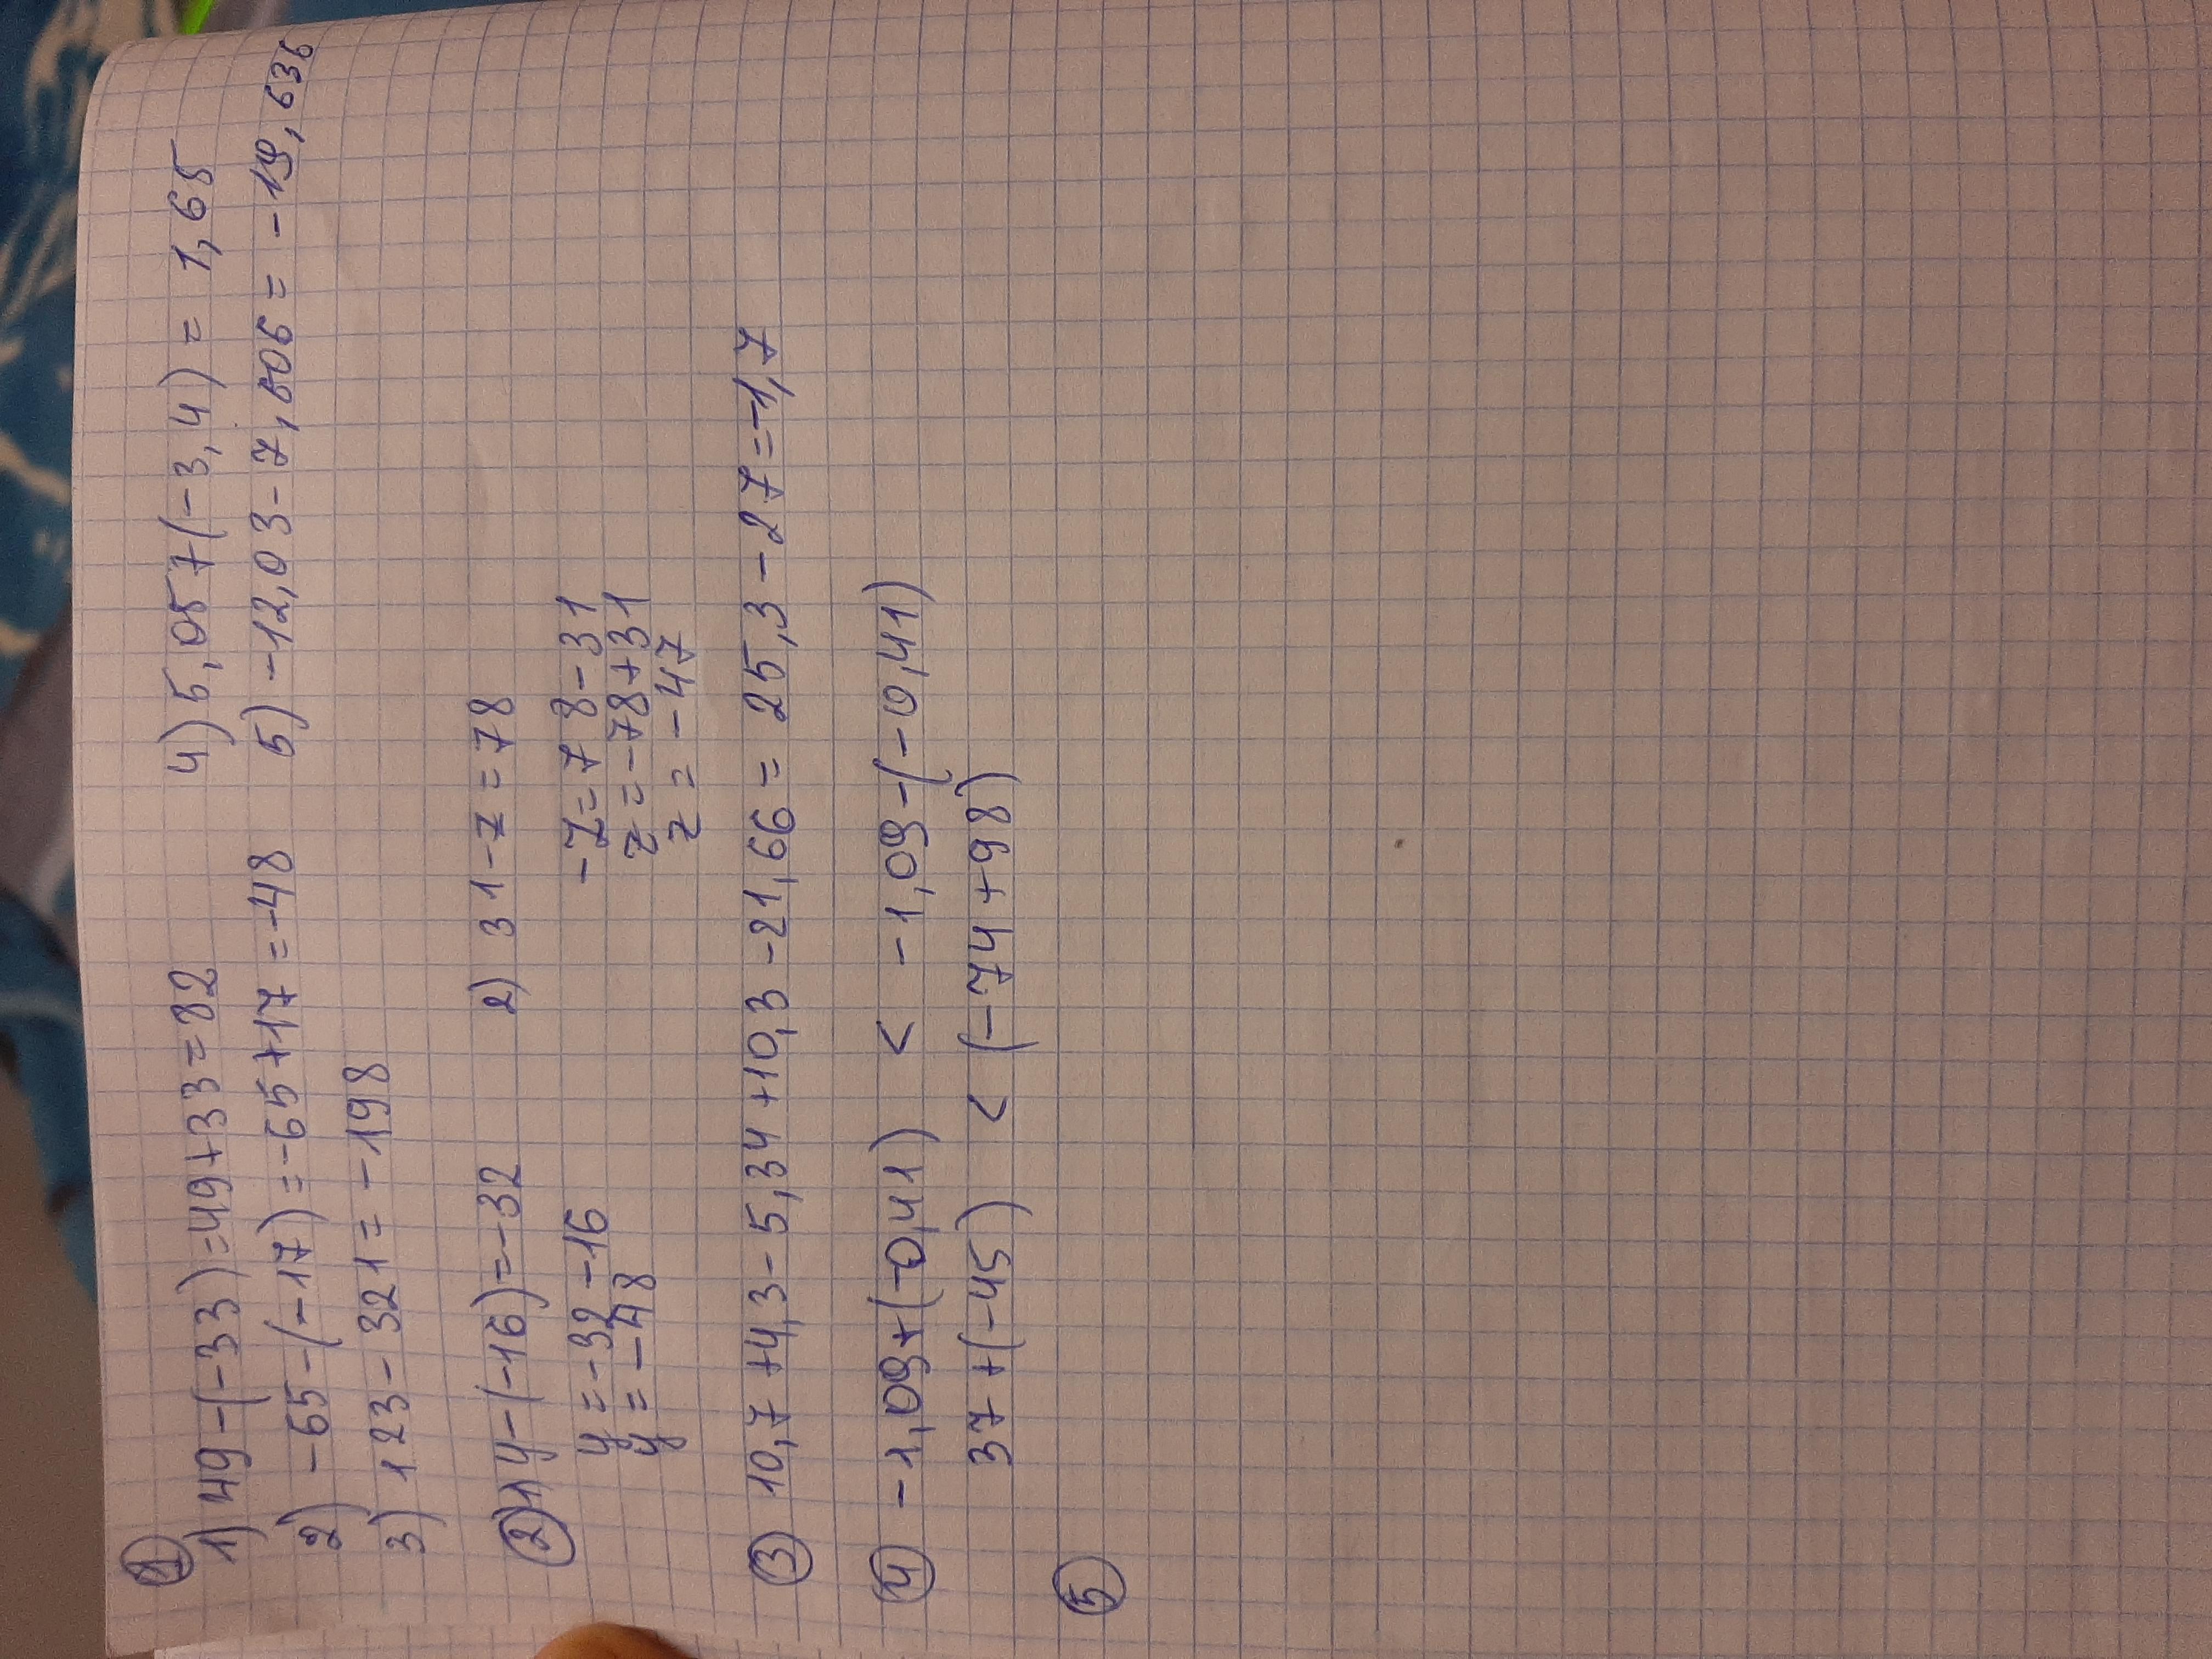 1
1) 49-(-33)=49+33=82
4) 5,05+(-3,4) = 1,65
2) -65-(-17)=-65+17=-48
5) -12,03-7,606=-19,636
3) 123-321=-198
2 1) y-(-16)=-32
2) 31-z=78
y=-32-16
-z=78-31
y=-48
z=-78+31
z=-47
3 10,7+4,3-5,34+10,3-21,66=25,3-27=-1,7
4 -1,09+(-0,41) < -1,09-(-0,41)
37+(-45) < (-74+98)
5